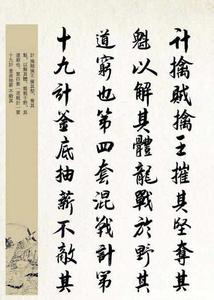 计擒贼擒王摧其坚夺其
魁以解其體龍戰於野其
道窮也第四套混戰计第
十九计釜底抽薪不敵其
计 擒賊擒王 摧其堅，奪其
魁，以解其體。龍戰于野，其
道窮也。第四套 混戰计 第
十九计 釜底抽薪 不敵其